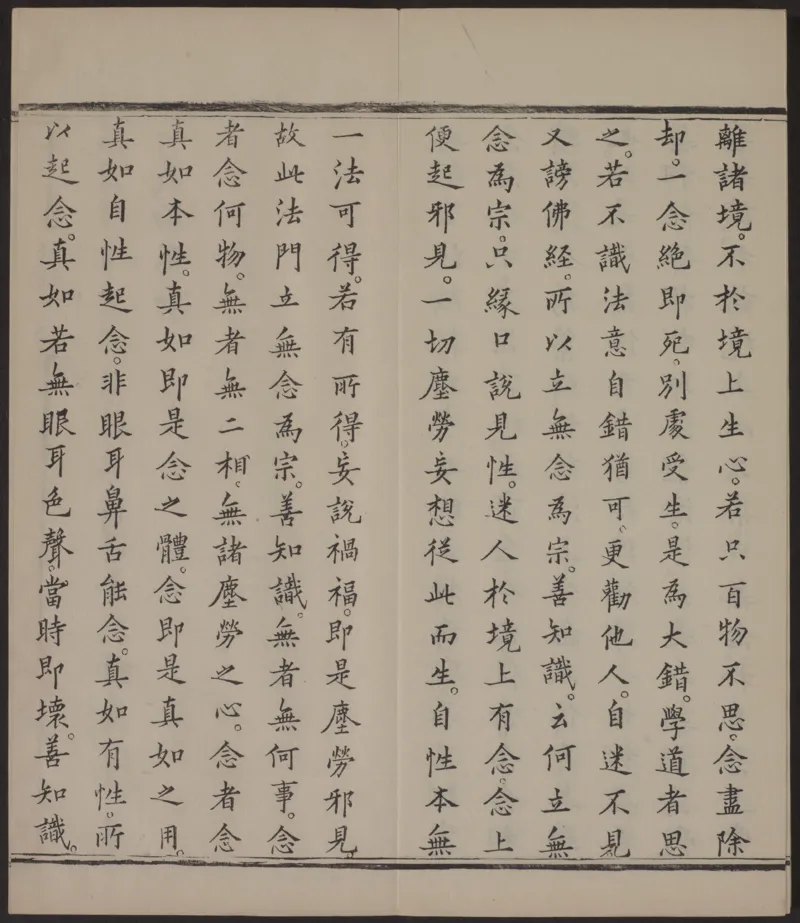 離諸境。不於境上生心。若只百物不思。念盡除
却。一念絕即死。別處受生。是為大錯。學道者思
之。若不識法意自錯猶可。更勸他人。自迷不見
又謗佛經。所以立無念為宗。善知識。云何立無
念為宗。只緣口說見性。迷人於境上有念。念上
便起邪見。一切塵勞妄想從此而生。自性本無
一法可得。若有所得。妄說禍福。即是塵勞邪見。
故此法門立無念為宗。善知識。無者無何事。念
者念何物。無者無二相。無諸塵勞之心。念者念
真如本性。真如即是念之體。念即是真如之用。
真如自性起念。非眼耳鼻舌能念。真如有性。所
以起念。真如若無眼耳色聲。當時即壞。善知識。